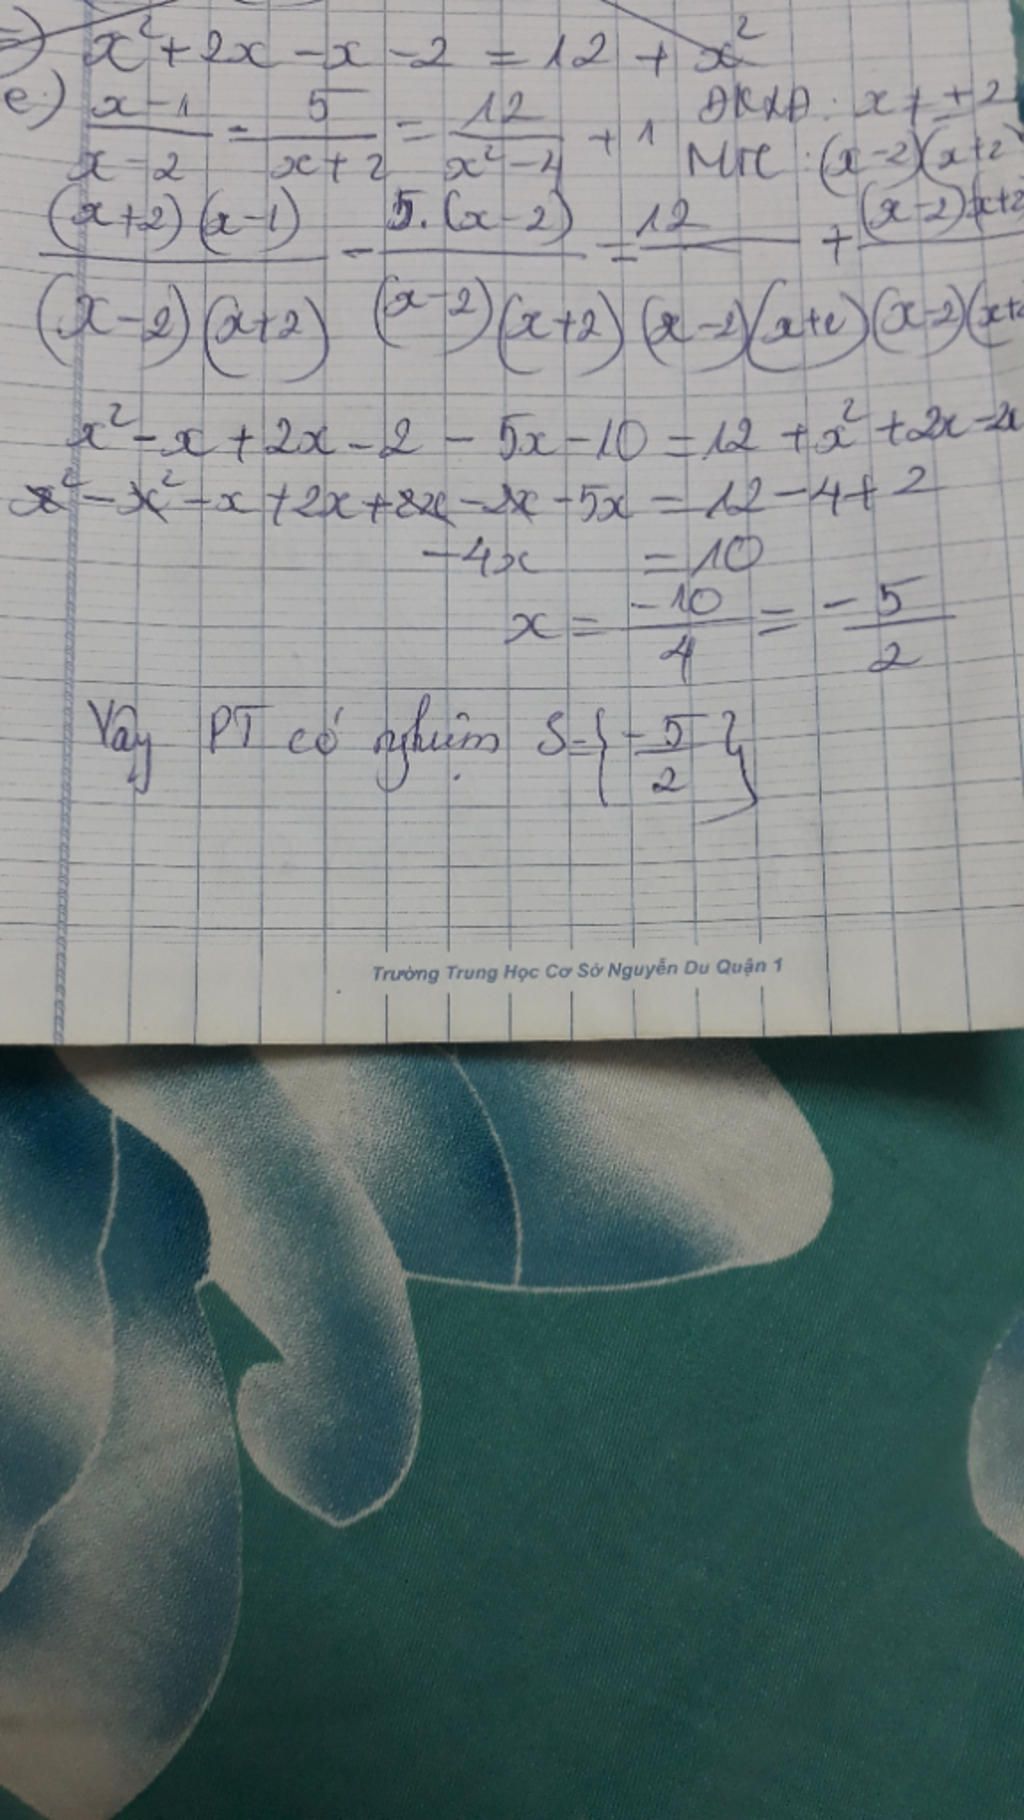 x² + 2x - x - 2 = 12 + x²
e) x - 1 / x - 2 - 5 / x + 2 = 12 / x² - 4 + 1 ĐKXĐ : x ≠ ± 2
MTC : (x - 2)(x + 2)
(x+2)(x-1) / (x-2)(x+2) - 5.(x-2) / (x-2)(x+2) = 12 / (x-2)(x+2) + (x-2)(x+2) / (x-2)(x+2
x² - x + 2x - 2 - 5x - 10 = 12 + x² + 2x - 2x
x² - x² - x + 2x + 2x - 2x - 5x = 12 - 4 + 2
-4x = 10
x = -10 / 4 = - 5 / 2
Vậy PT có nghiệm S = { - 5 / 2 }
Trường Trung Học Cơ Sở Nguyễn Du Quận 1